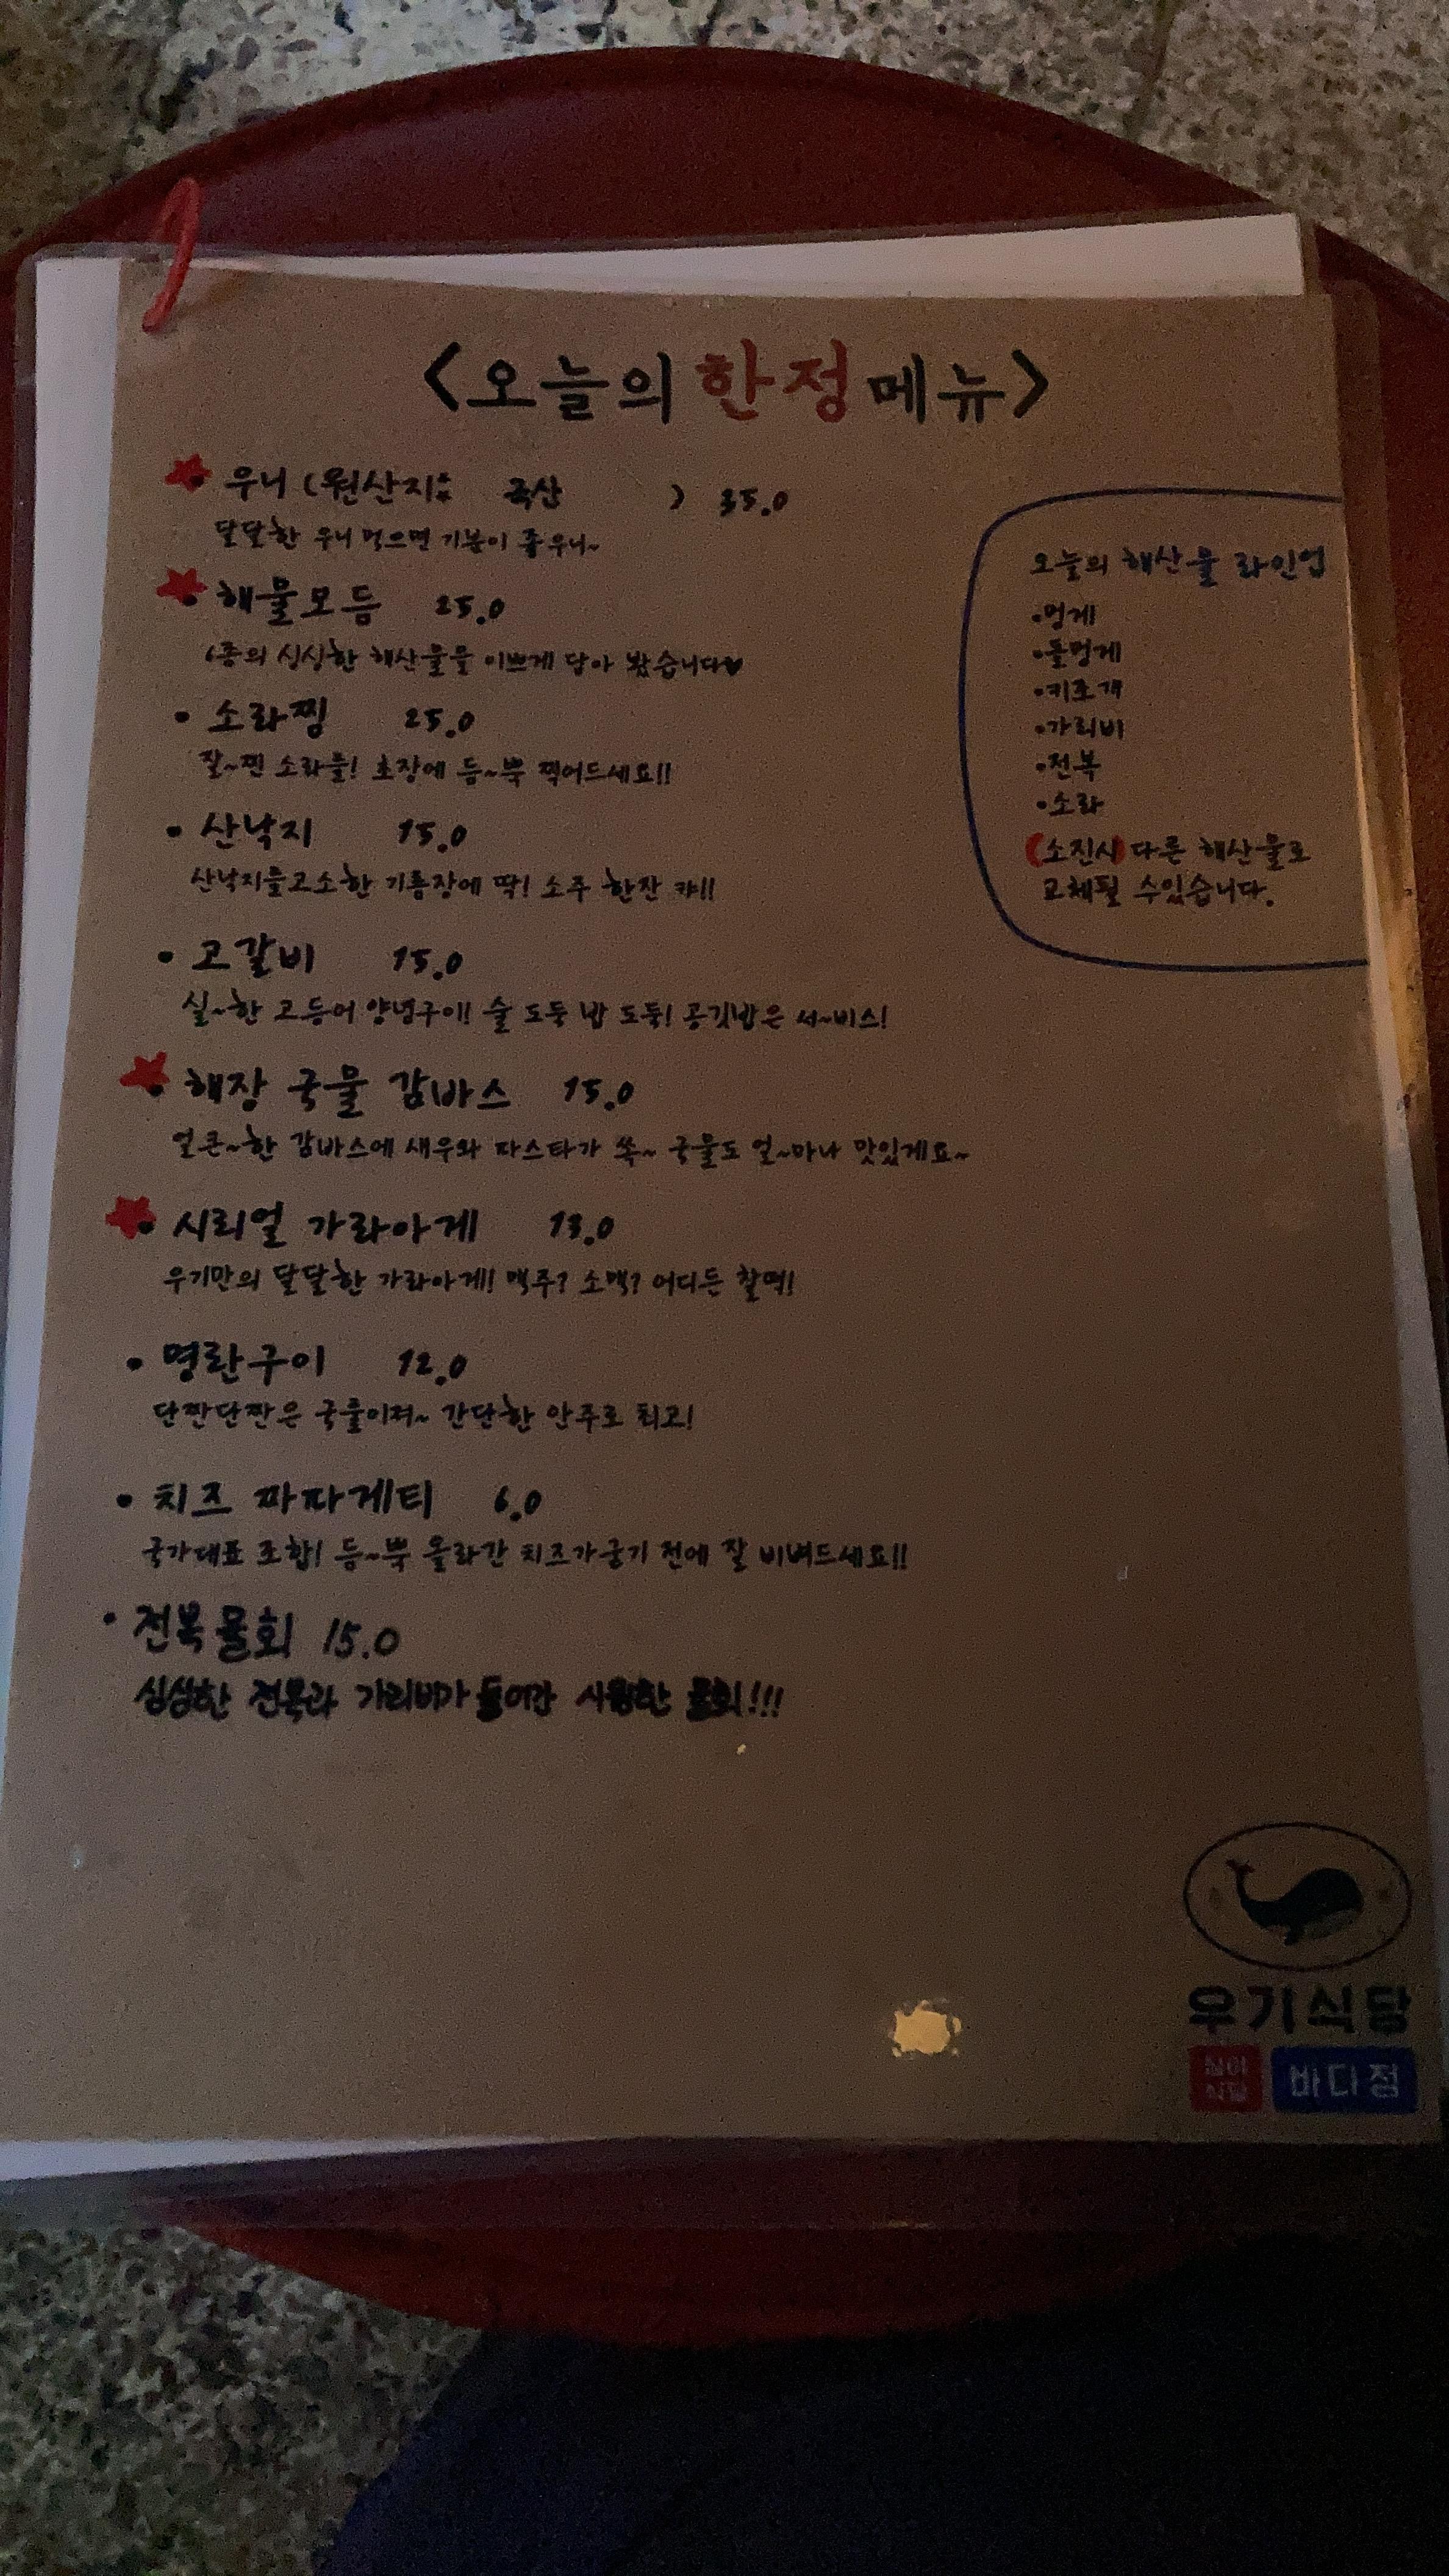 <오늘의 한정 메뉴>
우니 (원산지: 국산 ) 35.0
달달한 우니 먹으면 기분이 좋우니~
• 해물모듬 25.0
6종의 싱싱한 해산물을 이쁘게 담아 봤습니다♥
• 소라찜 25.0
잘~찐 소라를! 초장에 듬~뿍 찍어드세요!!
• 산낙지 15.0
산낙지를고소한 기름장에 딱! 소주 한잔 캬!!
• 고갈비 15.0
실~한 고등어 양념구이! 술 도둑 밥 도둑! 공깃밥은 서~비스!
• 해장 국물 감바스 15.0
얼큰~한 감바스에 새우와 파스타가 쏙~ 국물도 얼~마나 맛있게요~
• 시리얼 가라아게 13.0
우기만의 달달한 가라아게! 맥주? 소맥? 어디든 찰떡!
• 명란구이 12.0
단짠단짠은 국룰이져~ 간단한 안주로 최고!
• 치즈 짜파게티 6.0
국가대표 조합! 듬~뿍 올라간 치즈가굳기 전에 잘 비벼드세요!!
• 전복물회 15.0
싱싱한 전복과 가리비가 들어간 시원한 물회!!!
오늘의 해산물 라인업
•멍게
•돌멍게
•키조개
•가리비
•전복
•소라
(소진시) 다른 해산물로
교체될 수있습니다.
우기식당
바다점